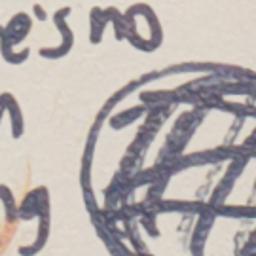 e's no
n
ng